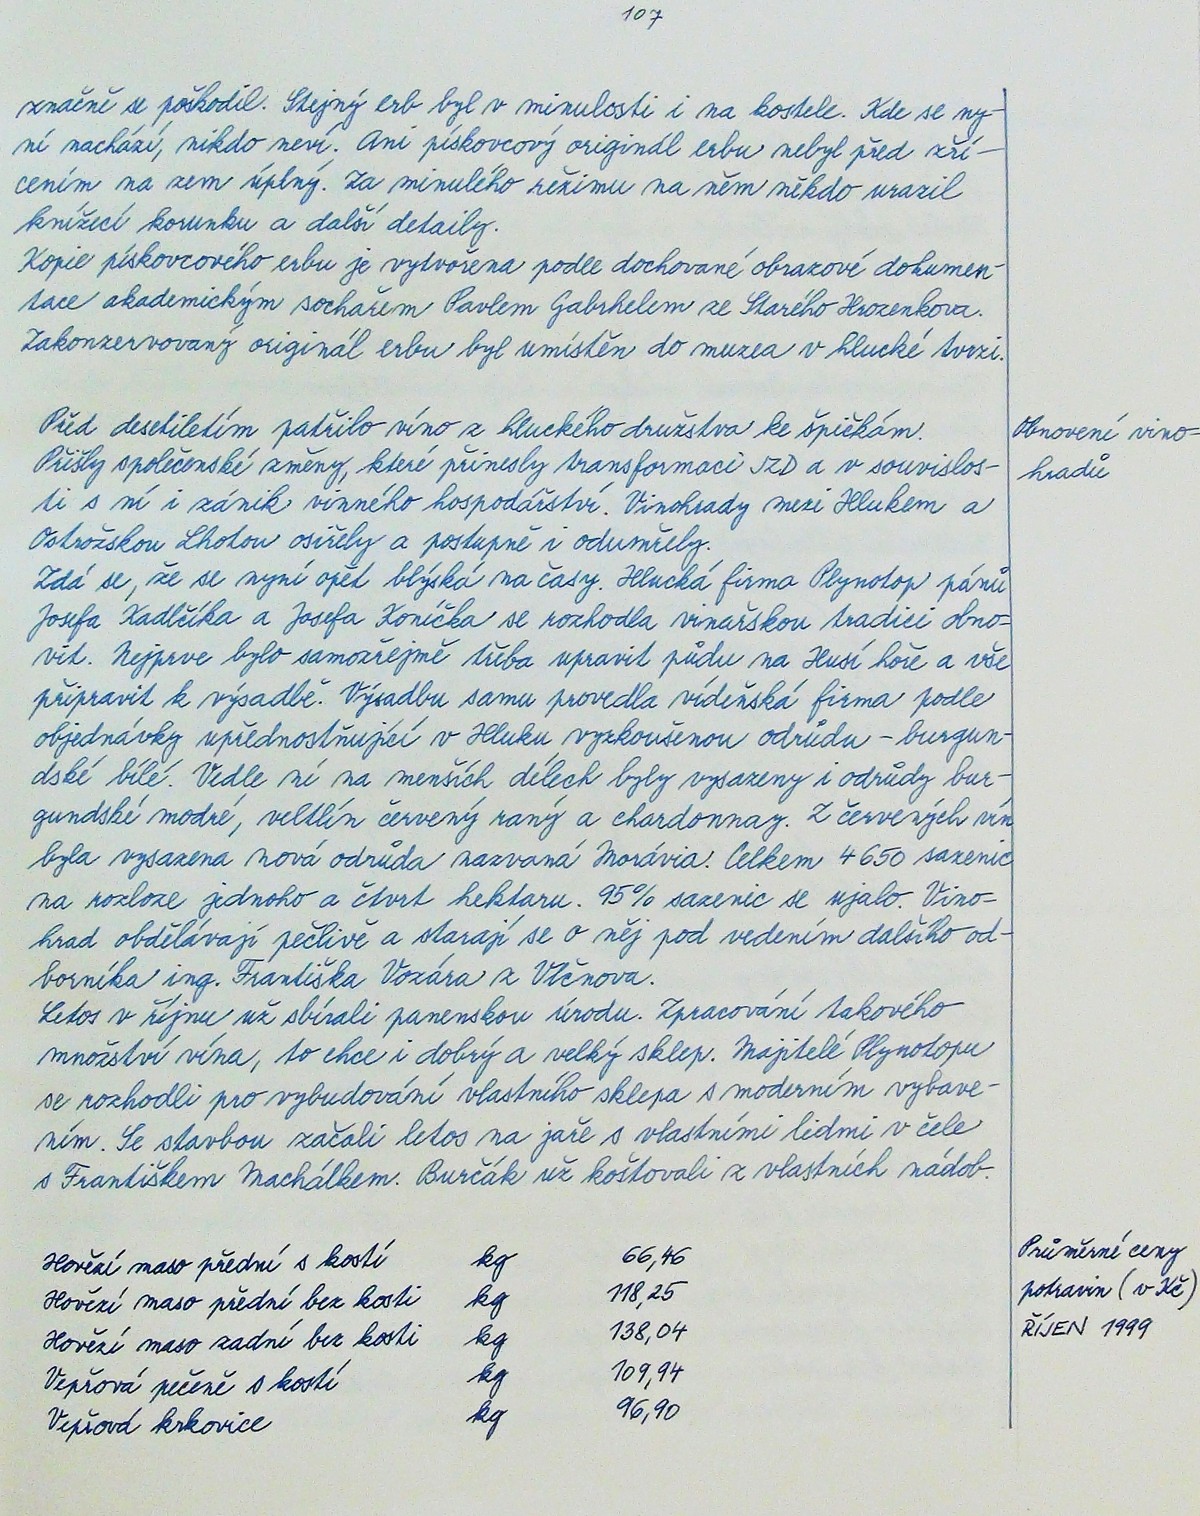 107
značně se poškodil. Stejný erb byl v minulosti i na kostele. Kde se ny-
ní nachází, nikdo neví. Ani pískovcový originál erbu nebyl před zří-
cením na zem úplný. Za minulého režimu na něm někdo urazil
knížecí korunku a další detaily.
Kopie pískovcového erbu je vytvořena podle dochované obrazové dokumen-
tace akademickým sochařem Pavlem Gabrhelem ze Starého Hrozenkova.
Zakonzervovaný originál erbu byl umístěn do muzea v hlucké tvrzi.
Před desetiletím patřilo víno z hluckého družstva ke špičkám.
Obnovení vino-
hradů
Přišly společenské změny, které přinesly transformaci JZD a v souvislos-
ti s ní i zánik vinného hospodářství. Vinohrady mezi Hlukem a
Ostrožskou Lhotou osiřely a postupně i odumřely.
Zdá se, že se nyní opět blýská na časy. Hlucká firma Plynotop pánů
Josefa Kadlčíka a Josefa Koníčka se rozhodla vinařskou tradici obno-
vit. Nejprve bylo samozřejmě třeba upravit půdu na Husí hoře a vše
připravit k výsadbě. Výsadbu samu provedla vídeňská firma podle
objednávky upřednostňující v Hluku vyzkoušenou odrůdu - burgun-
dské bílé. Vedle ní na menších dílech byly vysazeny i odrůdy bur-
gundské modré, veltlín červený raný a chardonnay. Z červených vín
byla vysazena nová odrůda nazvaná Morávia. Celkem 4650 sazenic
na rozloze jednoho a čtvrt hektaru. 95% sazenic se ujalo. Vino-
hrad obdělávají pečlivě a starají se o něj pod vedením dalšího od-
borníka ing. Františka Vozára z Vlčnova.
Letos v říjnu už sbírali panenskou úrodu. Zpracování takového
množství vína, to chce i dobrý a velký sklep. Majitelé Plynotopu
se rozhodli pro vybudování vlastního sklepa s moderním vybave-
ním. Se stavbou začali letos na jaře s vlastními lidmi v čele
s Františkem Machálkem. Burčák už koštovali z vlastních nádob.
Průměrné ceny
potravin (v Kč)
ŘÍJEN 1999
Hovězí maso přední s kostí kg 66,46
Hovězí maso přední bez kosti kg 118,25
Hovězí maso zadní bez kosti kg 138,04
Vepřová pečeně s kostí kg 109,94
Vepřová krkovice kg 96,90